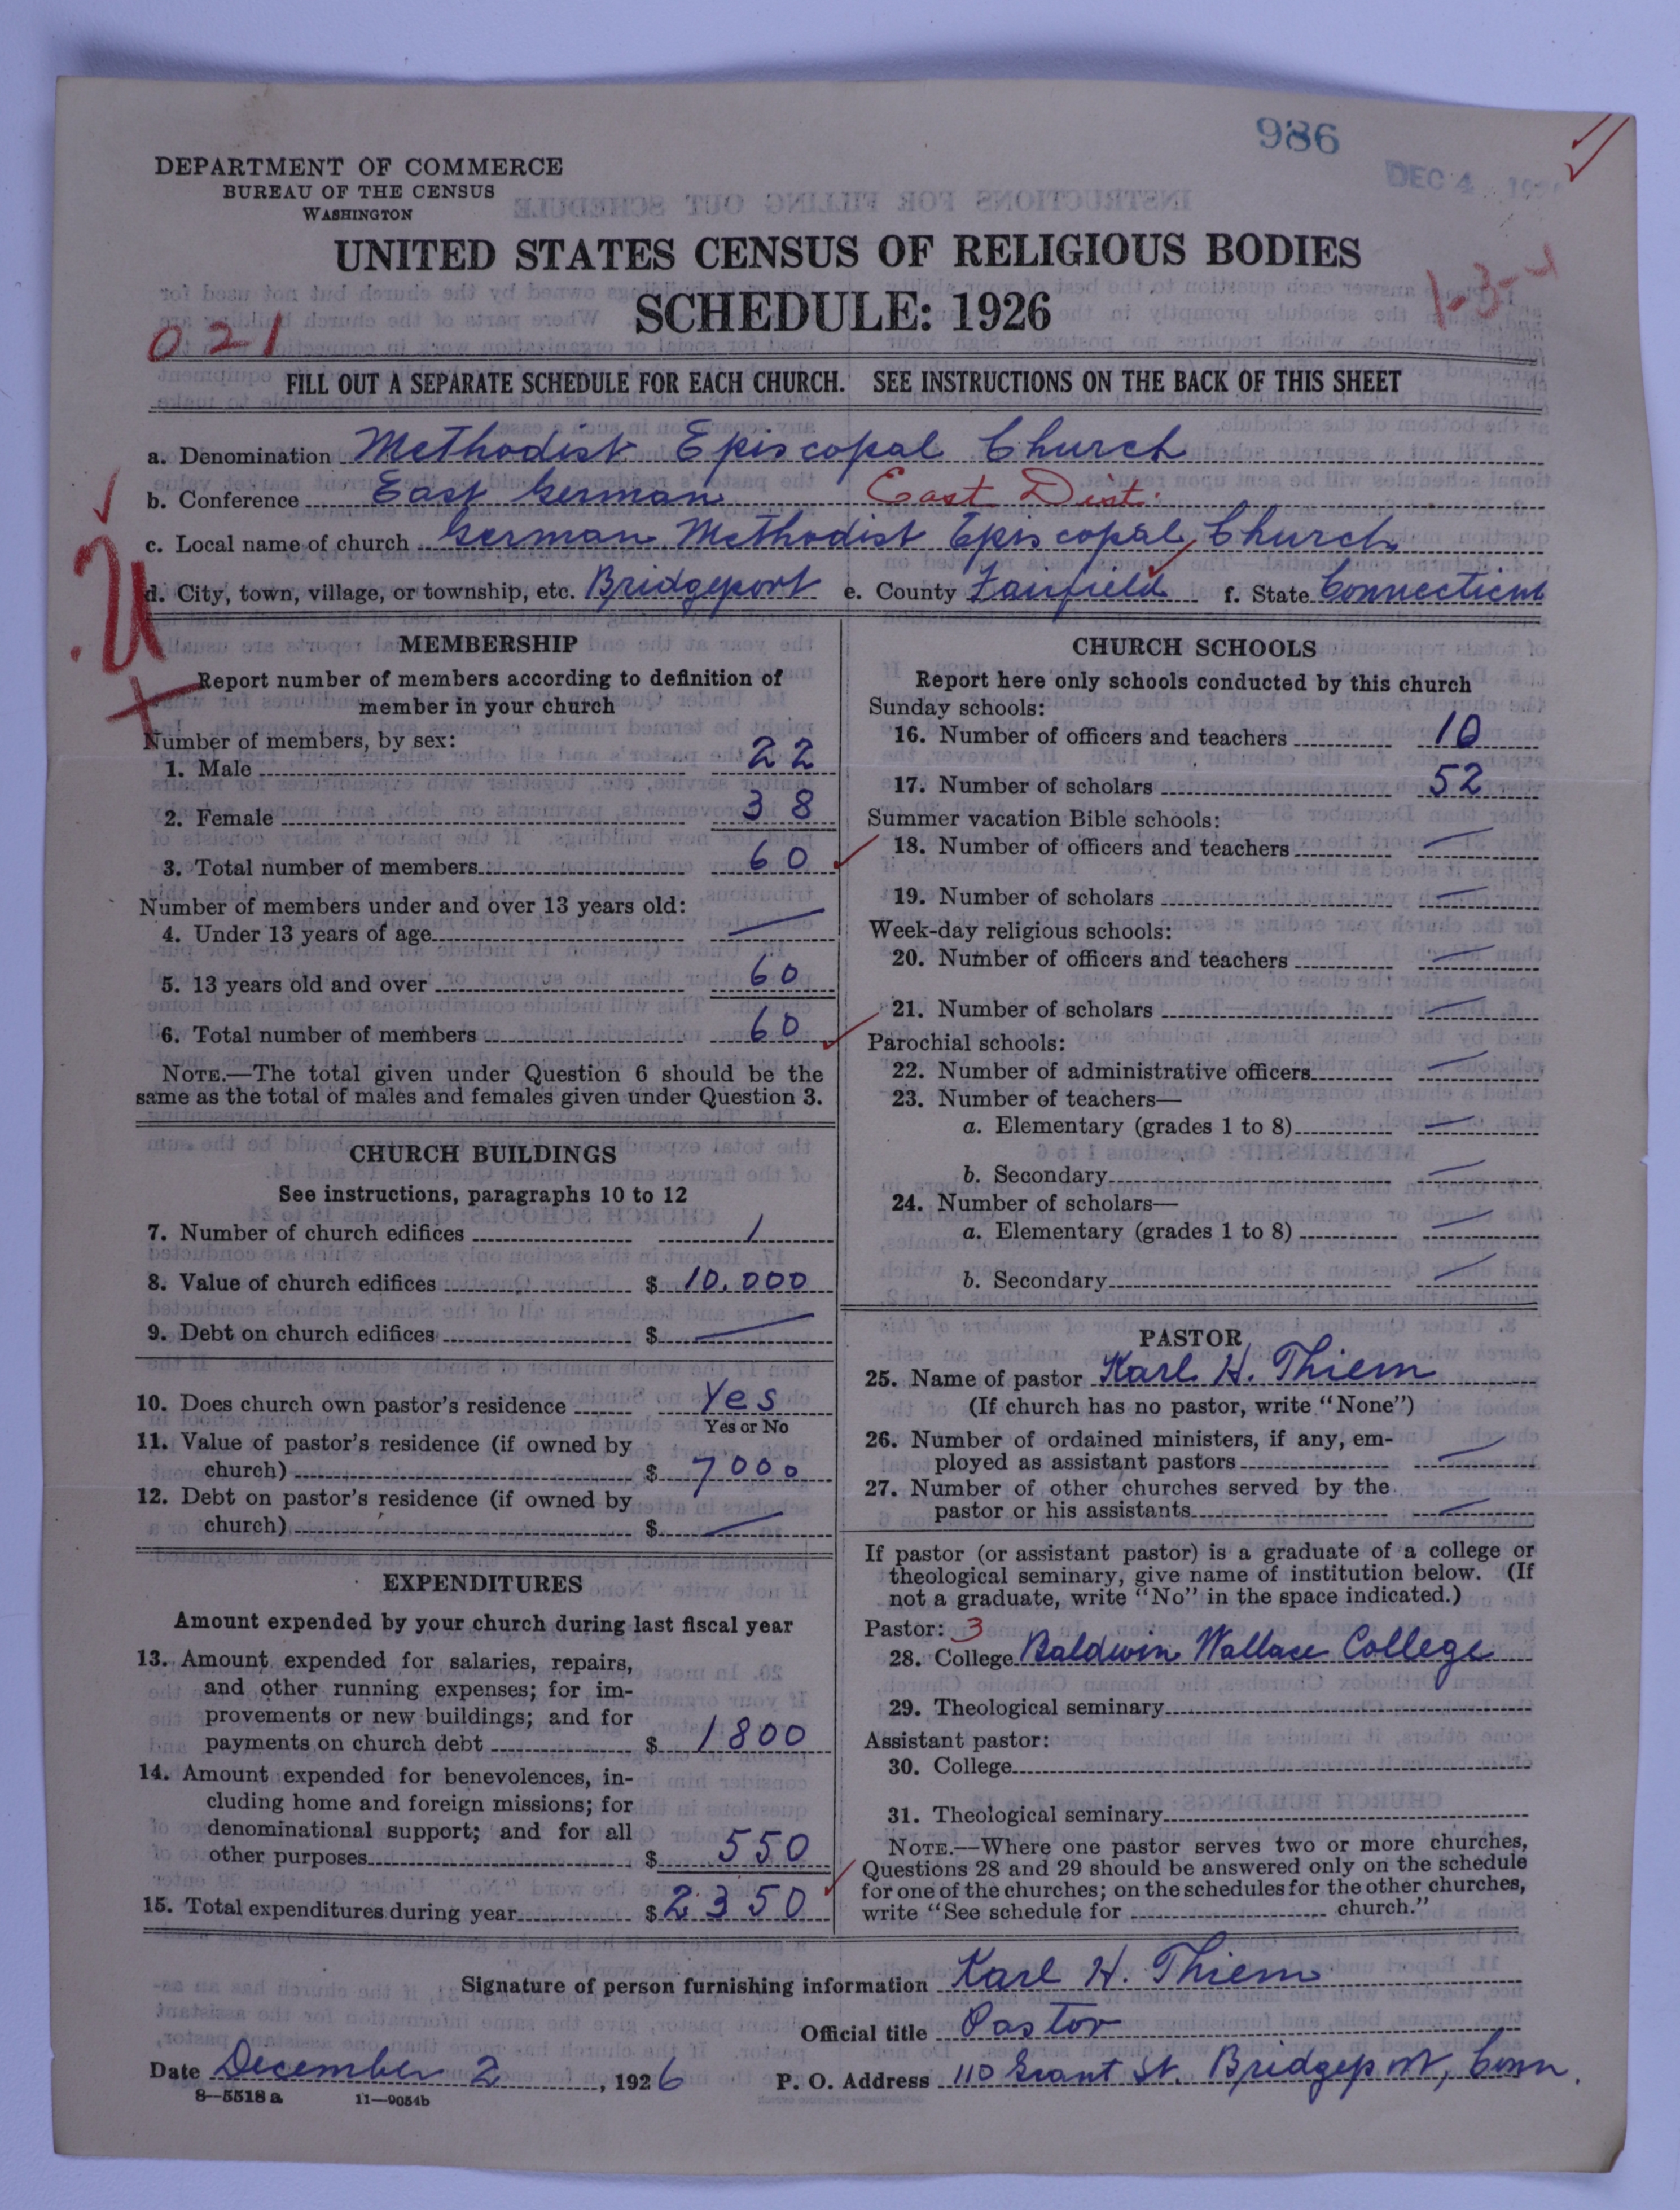 986
DEC 4
DEPARTMENT OF COMMERCE
BUREAU OF THE CENSUS
WASHINGTON
UNITED STATES CENSUS OF RELIGIOUS BODIES
SCHEDULE: 1926
1-3-4
021
FILL OUT A SEPARATE SCHEDULE FOR EACH CHURCH. SEE INSTRUCTIONS ON THE BACK OF THIS SHEET
a. Denomination Methodist Episcopal Church
b. Conference East German East Dist.
c. Local name of church German Methodist Episcopal Church
d. City, town, village, or township, etc. Bridgeport e. County Fairfield f. State Connecticut
U
MEMBERSHIP
Report number of members according to definition of
member in your church
Number of members, by sex:
1. Male 22
2. Female 38
3. Total number of members 60
Number of members under and over 13 years old:
4. Under 13 years of age —
5. 13 years old and over 60
6. Total number of members 60
NOTE.—The total given under Question 6 should be the
same as the total of males and females given under Question 3.
CHURCH BUILDINGS
See instructions, paragraphs 10 to 12
7. Number of church edifices 1
8. Value of church edifices $ 10,000
9. Debt on church edifices $ —
10. Does church own pastor's residence Yes
Yes or No
11. Value of pastor's residence (if owned by
church) $ 7000
12. Debt on pastor's residence (if owned by
church) $ —
EXPENDITURES
Amount expended by your church during last fiscal year
13. Amount expended for salaries, repairs,
and other running expenses; for im-
provements or new buildings; and for
payments on church debt $ 1800
14. Amount expended for benevolences, in-
cluding home and foreign missions; for
denominational support; and for all
other purposes $ 550
15. Total expenditures during year $ 2350
CHURCH SCHOOLS
Report here only schools conducted by this church
Sunday schools:
16. Number of officers and teachers 10
17. Number of scholars 52
Summer vacation Bible schools:
18. Number of officers and teachers —
19. Number of scholars —
Week-day religious schools:
20. Number of officers and teachers —
21. Number of scholars —
Parochial schools:
22. Number of administrative officers —
23. Number of teachers—
a. Elementary (grades 1 to 8) —
b. Secondary —
24. Number of scholars—
a. Elementary (grades 1 to 8) —
b. Secondary —
PASTOR
25. Name of pastor Karl H. Thiem
(If church has no pastor, write "None")
26. Number of ordained ministers, if any, em-
ployed as assistant pastors —
27. Number of other churches served by the
pastor or his assistants —
If pastor (or assistant pastor) is a graduate of a college or
theological seminary, give name of institution below. (If
not a graduate, write "No" in the space indicated.)
Pastor: 3
28. College Baldwin Wallace College
29. Theological seminary
Assistant pastor:
30. College
31. Theological seminary
NOTE.—Where one pastor serves two or more churches,
Questions 28 and 29 should be answered only on the schedule
for one of the churches; on the schedules for the other churches,
write "See schedule for church."
Signature of person furnishing information Karl H. Thiem
Official title Pastor
Date December 2, 1926 P. O. Address 110 Grant St. Bridgeport, Conn.
8—5518a 11—9054b